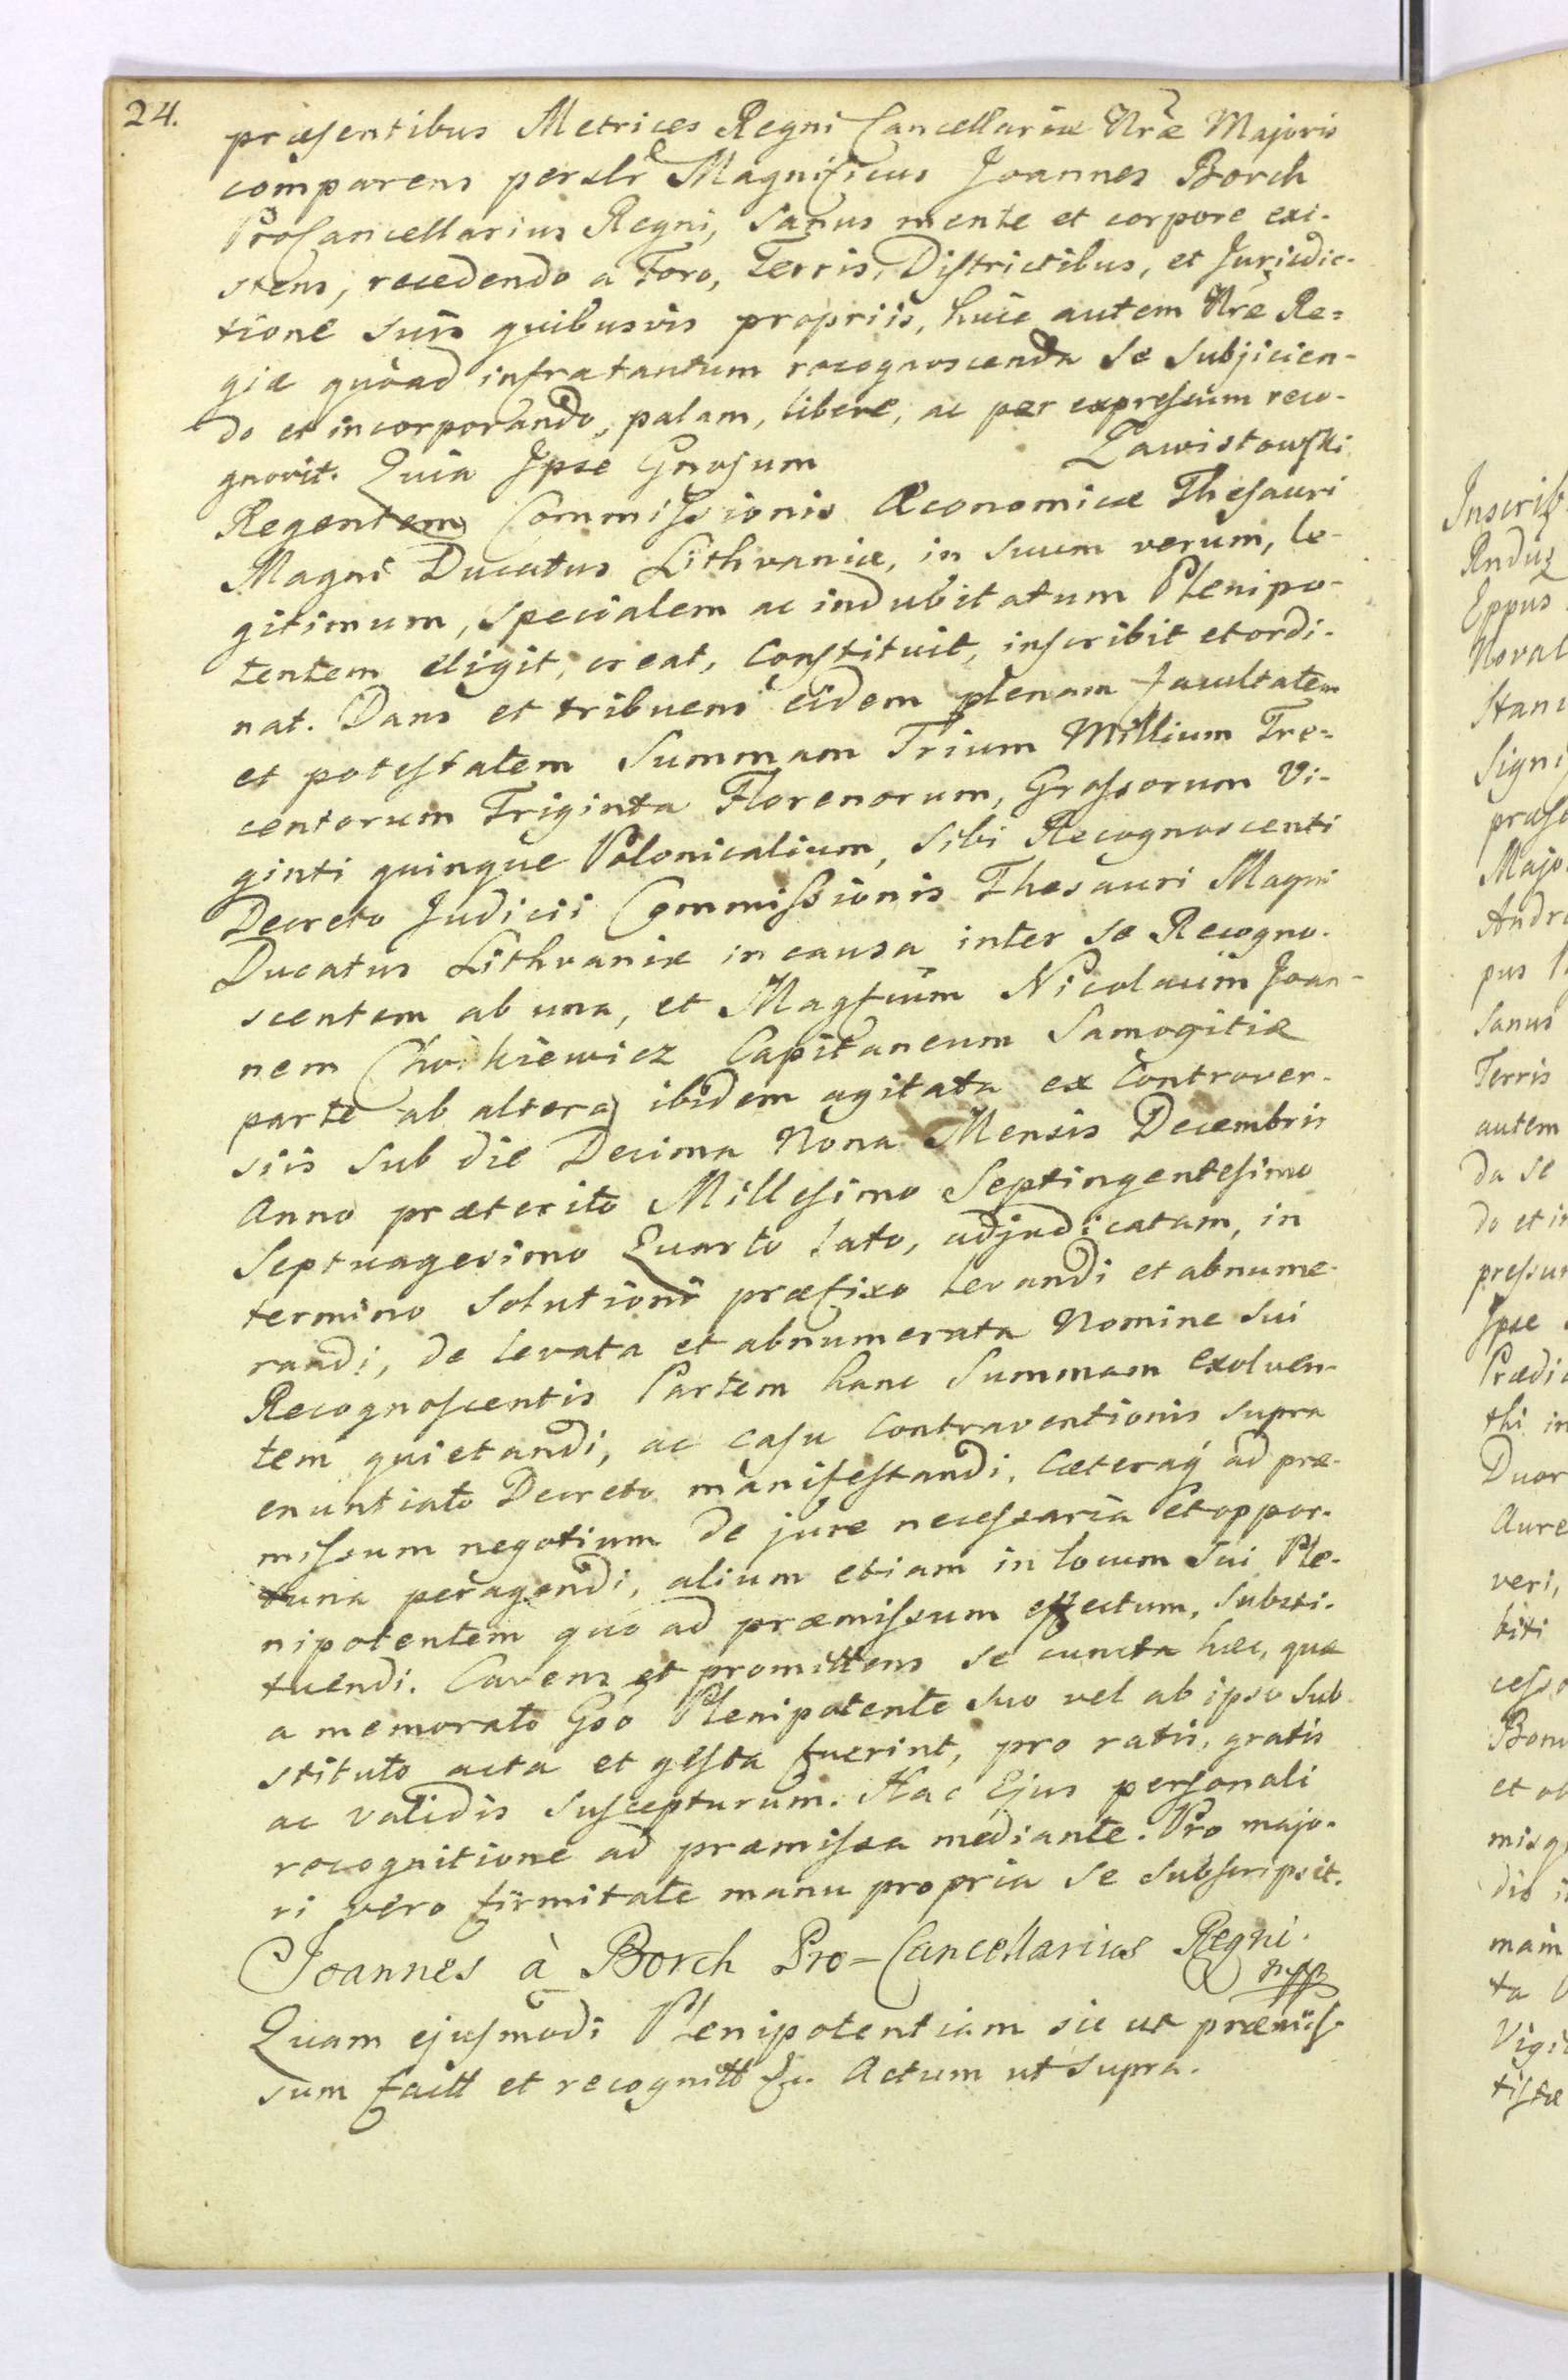 24.
præsentibus Metrices Regni Cancellariæ Nræ Majoris
comparens persLr Magnificus Joannes Borch
ProCancellarius Regni, Sanus mente et corpore exi-
stens, recedendo a Foro, Terris, Districtibus, et Jurisdic-
tione suis quibusvis propriis, huic autem Nræ Re=
giæ quoad infratantum recognoscenda Se Subjicien-
do et incorporando, palam, libere, ac per expressum reco-
gnovit. Quia Ipse Gnosum Zawistowski
Regentem Commissionis Æconomicæ Thesauri
Magni Ducatus Lithvaniæ, in suum verum, le-
gitimum, Specialem ac indubitatum Plenipo-
tentem eligit, creat, Constituit, inscribit et ordi-
nat. Dans et tribuens eidem plenam facultatem
et potestatem Summam Trium Millium Tre=
centorum Triginta Florenorum, Grossorum Vi-
ginti quinque Polonicalium, Sibi Recognoscenti
Decreto Judicii Commissionis Thesauri Magni
Ducatus Lithvaniæ in causa inter se Recogno-
scentem ab una, et Magfcum Nicolaum Joan-
nem Chodkiewicz Capitaneum Samogitiæ
parte ab altera ibidem agitata ex Controver-
siis Sub die Decima Nona Mensis Decembris
Anno præterito Millesimo Septingentesimo
Septuagesimo Quarto lato, adjudicatam, in
termino Solutioni præfixo levandi et abnume-
randi, de levata et abnumerata Nomine Sui
Recognoscentis Partem hanc Summam exolven-
tem quietandi, ac casu Contraventionis supra
enuntiato Decreto manifestandi, Cæteraq ad præ-
missum negotium de jure necessaria et oppor-
tuna peragendi, alium etiam in locum Sui Ple-
nipotentem quo ad præmissum effectum, Substi-
tuendi. Cavens et promittens se cuncta hæc, quæ
a memorato Gso Plenipotente suo vel ab ipso Sub-
stituto acta et gesta fuerint, pro ratis, gratis
ac validis Suscepturum. Hac Ejus personali
recognitione ad præmissa mediante. Pro majo-
ri vero firmitate manu propria se Subscripsit.
Joannes à Borch Pro-Cancellarius Regni.
mpp
Quam ejusmodi Plenipotentiam sic ut præmis-
sum facitt et recognitt &c. Actum ut Supra.
Inscrib
Andus
Eppus
Stani
Signi
Majo
Andre
Sanus
Terris
autem
da se
do et in
pressum
Ipse
Prædi
thi in
Duor
Aure
veri,
biti
cesso
Bonu
et ob
dio i
mam
ta
Vigi
tistæ